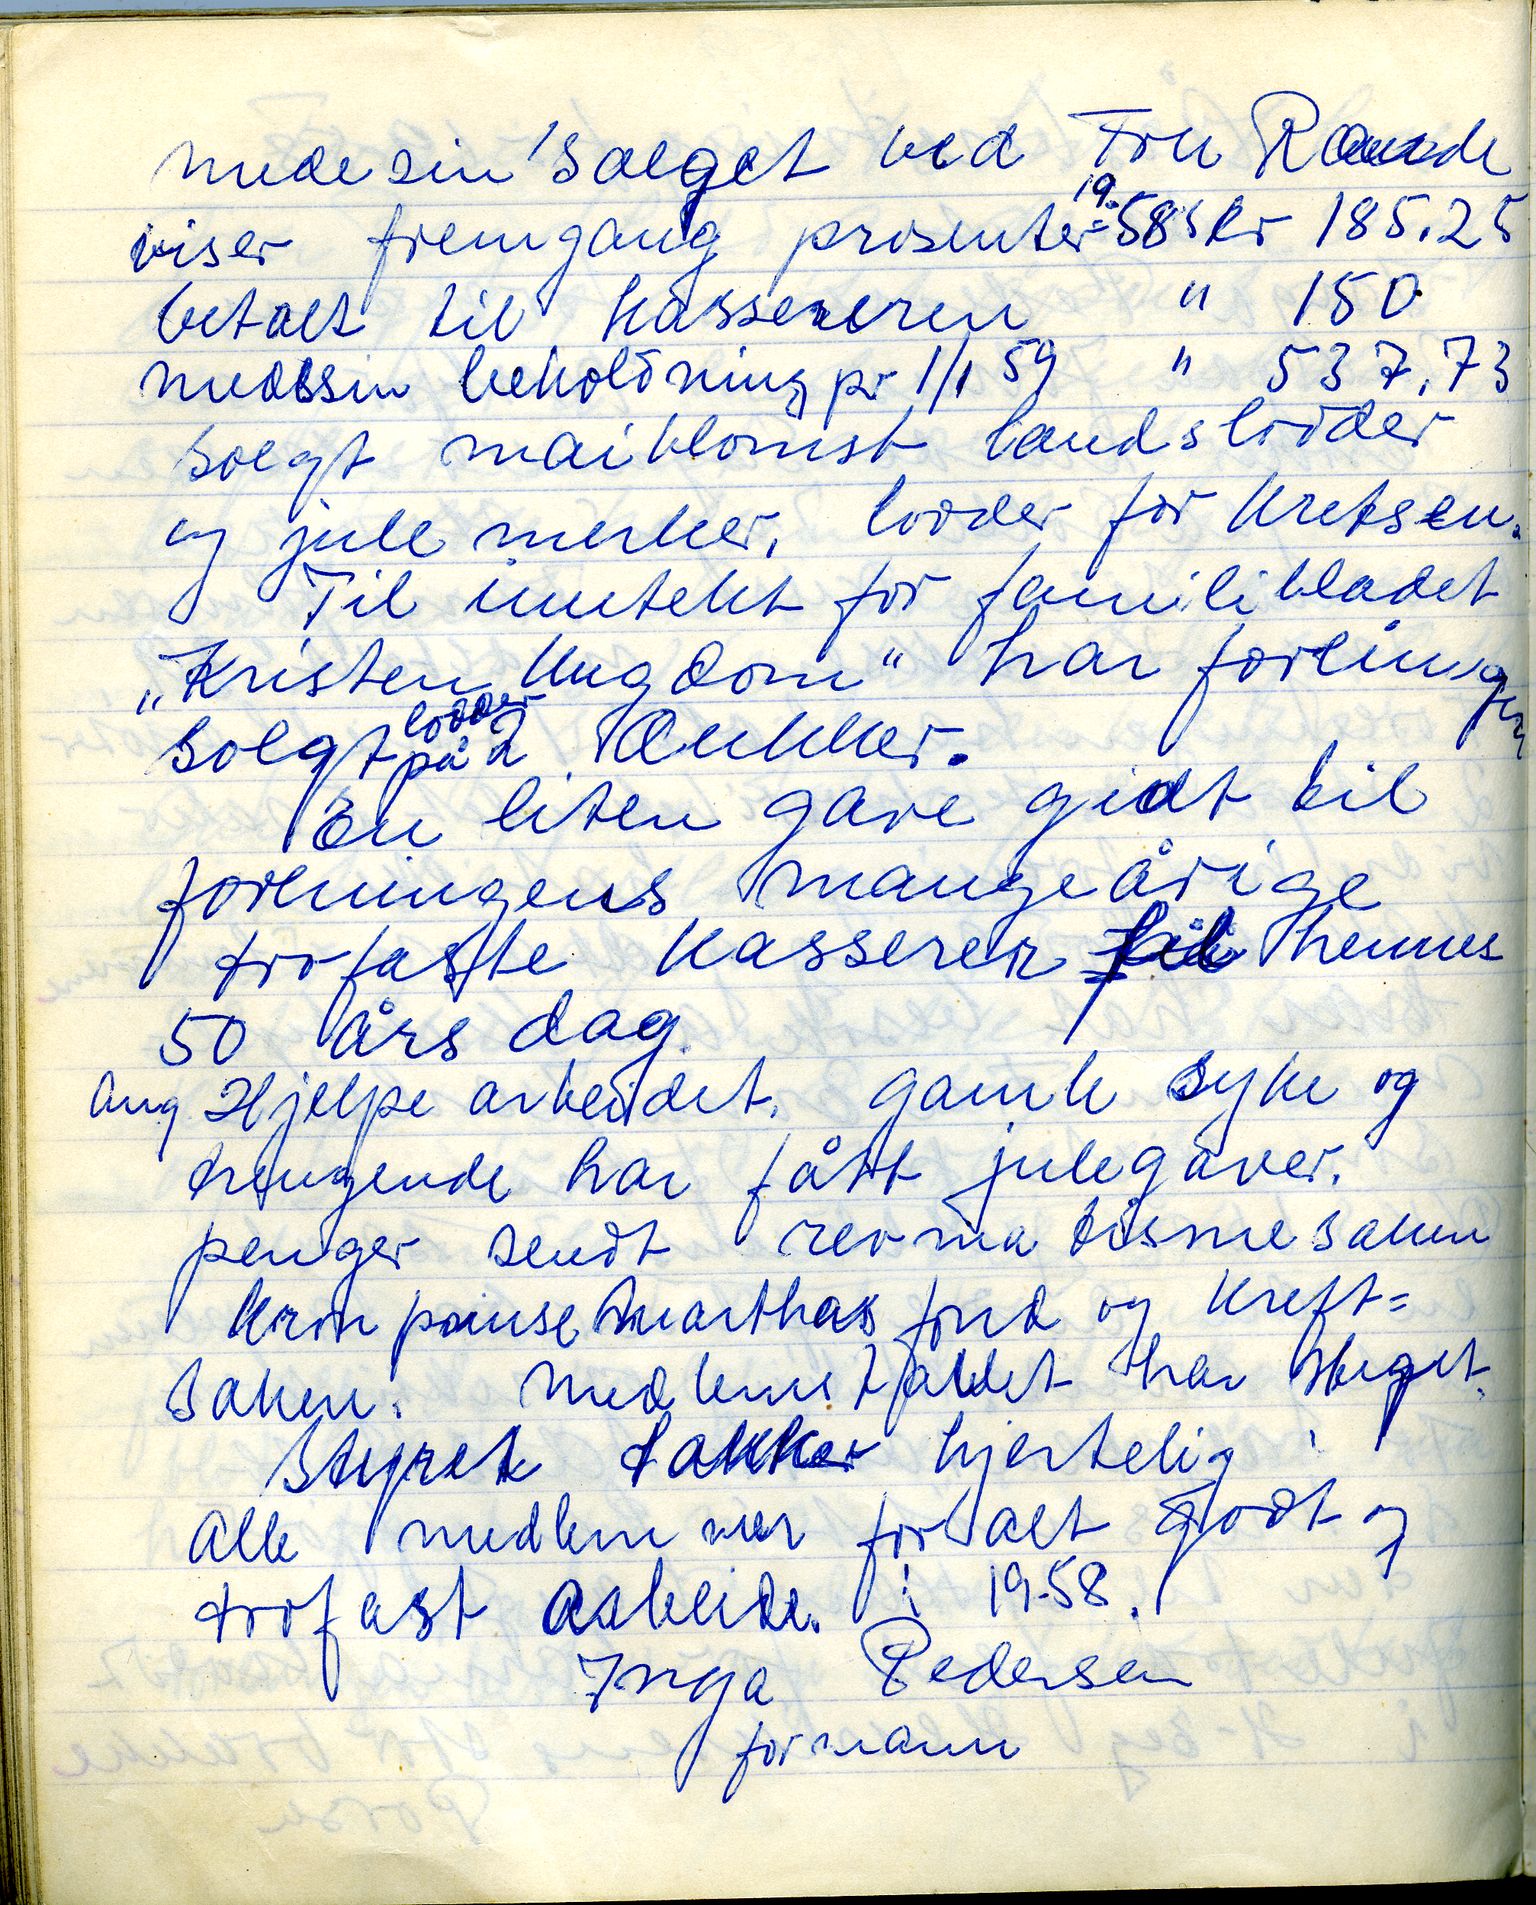 medesin salget ved Fru
viser fremgang prosenter 19.58 kr 185.25
betalt til Kassereren " 150
medssin beholdning pr 1/1 59 " 537,73
solgt maiblomst landslodder
og jule merker, lodder for Kretsen.
Til inntekt for familibladet
„Kristen Ungdom" har foreningen
solgt lodder på 2 Dukker.
En liten gave gidt til
foreningens mangeårige
trofaste Kasserer til hennes
50 års dag.
Ang Hjelpe arbeidet. gamle syke og
trengende har fått julegaver.
penger sendt revmatismesaken
Kronprinse Marthas fond og Kreft=
saken. Medlemstallet har steget.
Styret takker hjertelig
alle medlemmer for alt godt og
trofast arbeide i 1958.
Inga Pedersen
formann